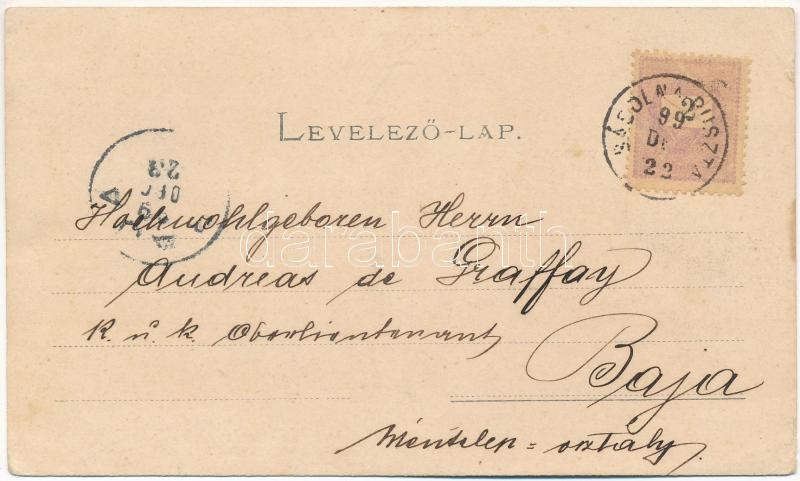 LEVELEZŐ-LAP.
2
BÁBOLNA PUSZTA
99
DE
22
Hochwohlgeboren Herrn
Andreas de Graffay
K. u. k. Oberlieutenant
Baja
Méntelep = osztály.
darabanth